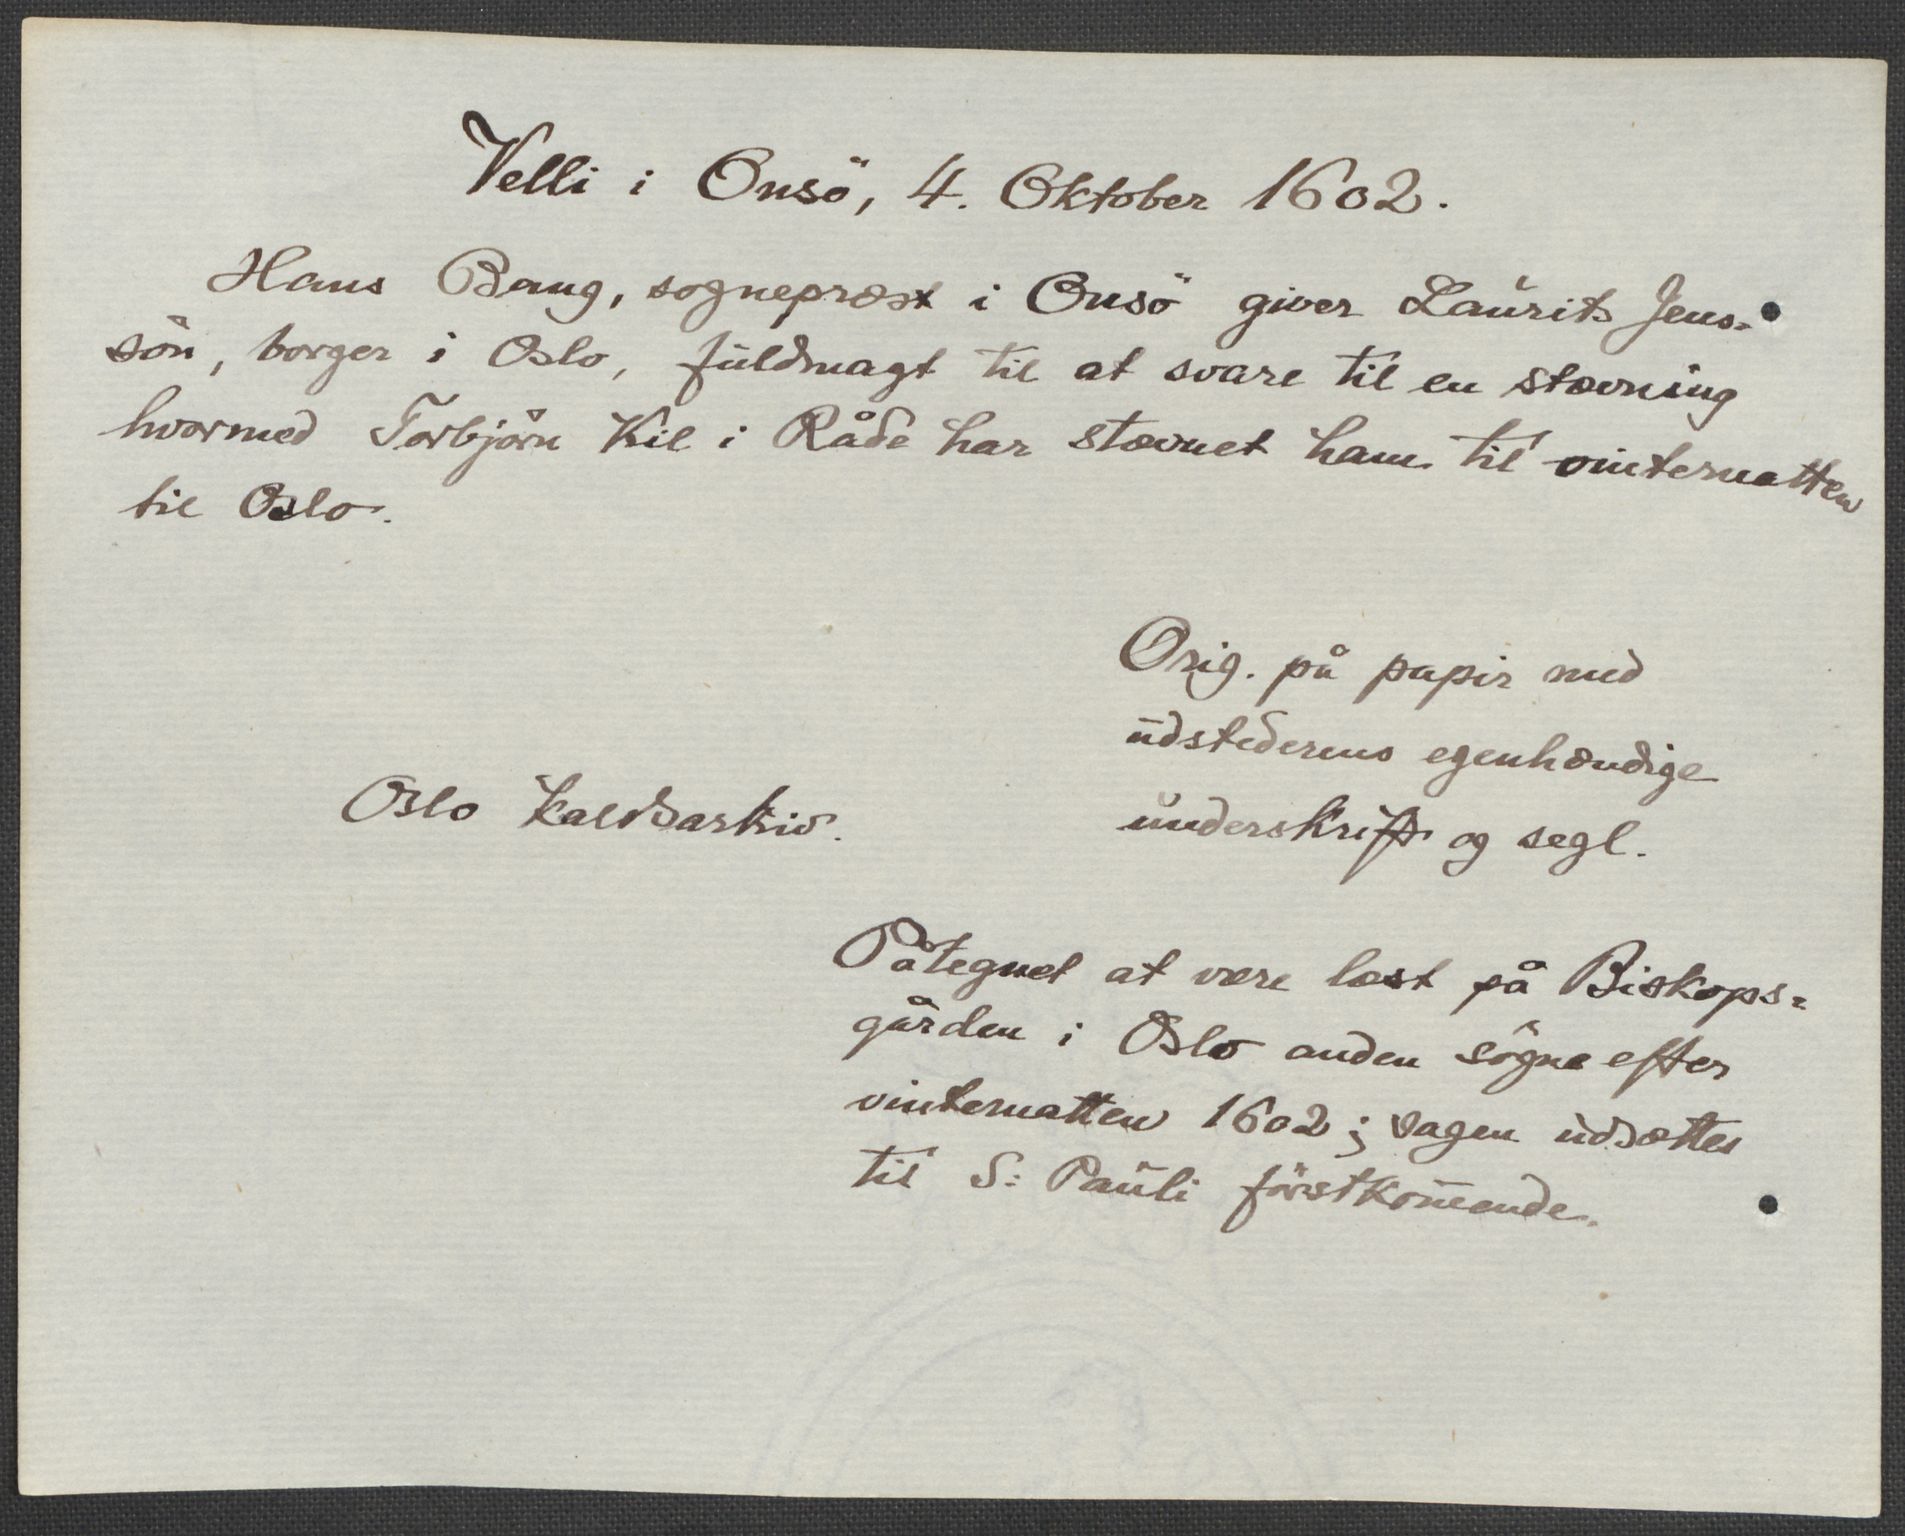 Velli i Onsö, 4. Oktober 1602.
Hans Bang, sognepræst i Onsö giver Laurits Jens-
sön, borger i Oslo, fuldmagt til at svare til en stævning
hvormed Torbjörn Kil i Råde har stævnet ham til vinternatten
til Oslo.
Orig. på papir med
udstederens egenhændige
underskrift og segl.
Oslo kaldsarkiv.
Påtegnet at være læst på Biskops=
gården i Oslo anden sögne efter
vinternatten 1602; sagen udsættes
til S: Pauli förstkom̅ende.